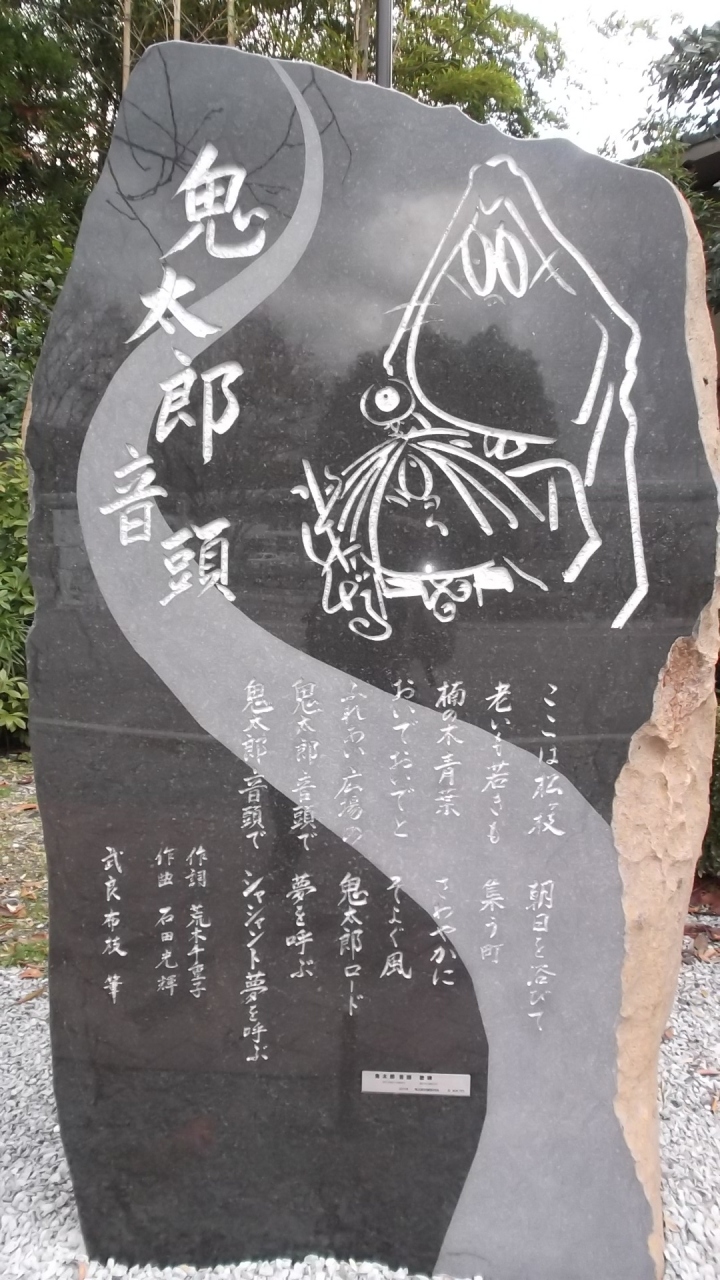 鬼太郎音頭
ここは松枝 朝日を浴びて
老いも若きも 集う町
楠の木青葉 さわやかに
おいでおいでと そよぐ風
ふれあい広場の 鬼太郎ロード
鬼太郎音頭で 夢を呼ぶ
鬼太郎音頭で シャシャント夢を呼ぶ
作詞 荒木千重子
作曲 石田光輝
武良布枝 筆
鬼太郎音頭 歌碑